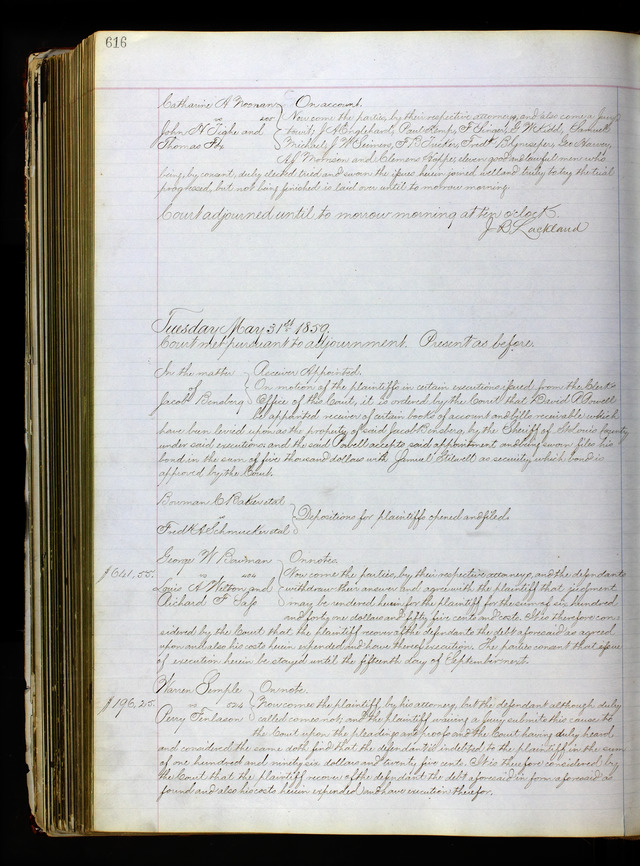 616
Catharine A Noonan } On account.
vs
John N Tighe and } Now come the parties, by their respective attorneys, and also come a jury
Thomas Fox } towit, J A Englehard, Paul Kemps, F G W Kelds, Samuel
Michael, J W Siemers, F B Tucker, Fredk Geo Harvey,
A J Morrison and Clemens eleven good and lawful men who
being, by consent, duly elected tried and sworn the issues herein joined well and truly to try the trial
progressed, but not being finished is laid over until to morrow morning.
Court adjourned until to morrow morning at ten oclock.
J R Lackland
Tuesday May 31st 1859.
Court met pursuant to adjournment. Present as before.
In the matter } Receiver Appointed.
of } On motion of the plaintiffs in certain executions issued from the Clerk's
Jacob Bensberg } Office of this Court, it is ordered by the Court that David P Powell
be appointed receiver of certain books of account and bills receivable which
have been levied upon as the property of said Jacob Bensberg by the Sheriff of St Louis County
under said executions, and the said Powell accepts said appointment and being sworn files his
bond in the sum of five thousand dollars with Samuel Gilwell as security, which bond is
approved by the Court.
Bowman C Baker et al
vs } Depositions for plaintiffs opened and filed.
Fredk A Schmucker et al
George W Bowman } On note.
$641.55. vs } Now come the parties, by their respective attorneys, and the defendants
Louis N Witton and } withdraw their answer and agree with the plaintiff that judgment
Richard F Sass } may be rendered herein for the plaintiff for the sum of six hundred
and forty one dollars and fifty five cents and costs. It is therefore con-
sidered by the Court that the plaintiff recover of the defendants the debt aforesaid as agreed
upon and also his costs herein expended and have thereof execution. The parties consent that issue
of execution herein be stayed until the fifteenth day of September next.
Warren Semple } On note.
$196.25. vs 524 } Now comes the plaintiff by his attorney, but the defendant although duly
Perry Finlason } called comes not, and the plaintiff waiving a jury submits this cause to
the Court upon the pleadings and proofs and the Court having duly heard
and considered the same doth find that the defendant is indebted to the plaintiff in the sum
of one hundred and ninety six dollars and twenty five cents. It is therefore considered by
the Court that the plaintiff recover of the defendant the debt aforesaid in form aforesaid as
found and also his costs herein expended and have execution therefor.